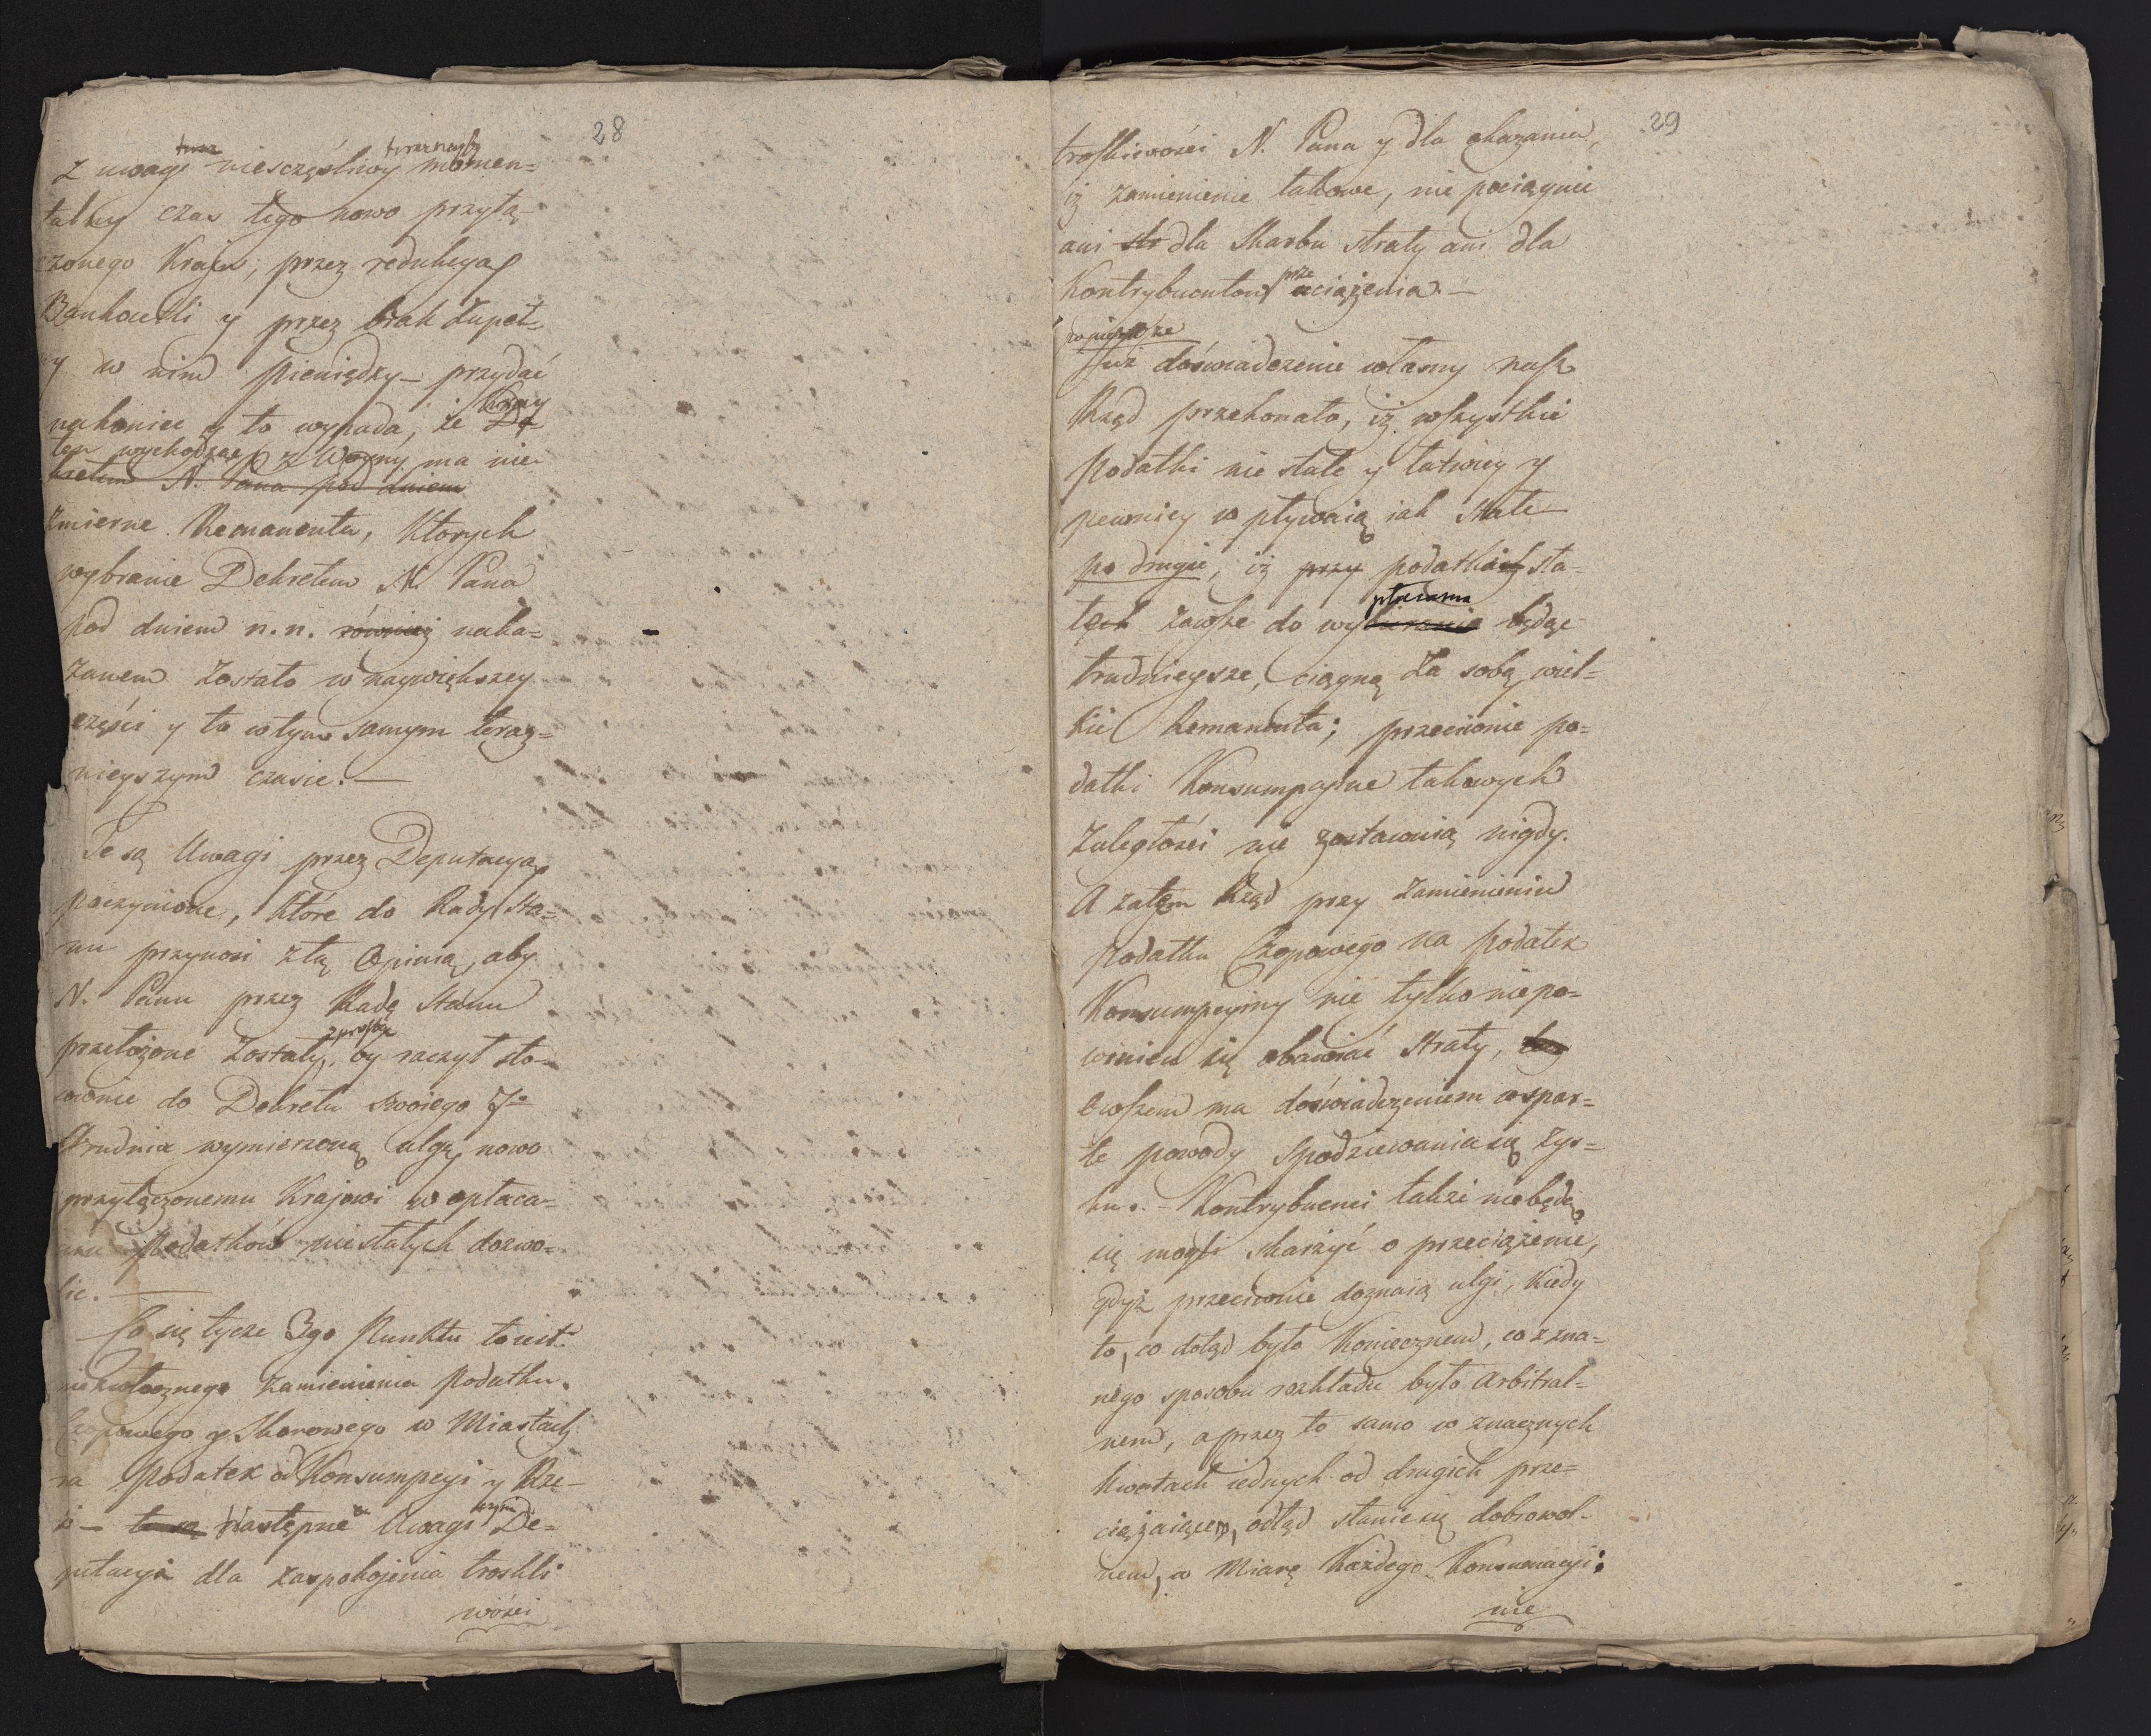 28
z uwagi niesczęśliwy teraznieyszy momen=
talny czas tego nowo przyłą=
czonego Kraju, przez redukcyą
Bankocetli y przez brak zupeł=
y w nim pieniędzy – przydać
nakoniec y to wypada, że Kray
ten wychodzący z Woyny ma nie
kretem N. Pana pod dniem
zmierne Remanenta, Ktorych
wybranie Dekretem N. Pana
pod dniem n. n. również naka=
zanem zostało w naywiększey
części y to w tym samym teraz=
nieyszym czasie. —
Te są Uwagi przez Deputacyą
poczynione, które do Rady Sta=
nu przynosi z tą Opinią, aby
N. Panu przez Radę Stanu
przełożone zostały, z prośbą by raczył sto=
sownie do Dekretu swoiego 7o
Grudnia wymierzoną ulgę nowo
przyłączonemu Krajowi w opłaca=
niu Podatków niestałych dozwo=
lic. —
Co się tycze 3go Punktu to iest
niezwłocznego zamienienia Podatku
Czopowego y Skorowego w Miastach
na Podatek od Konsumpcyi y Rze=
zi – te są następne Uwagi czyni De=
putacyia dla zaspokojenia troskli
wości
29
troskliwości N. Pana y dla okazania,
iż zamienienie takowe, nie pociągnie
ani str dla Skarbu straty ani dla
Kontrybuentow przeciążenia. —
po pierwsze
Już doświadczenie własny nasz
Rząd przekonało, iż wszystkie
podatki nie stałe y łatwiey y
pewniey w pływaią iak Stałe —
po drugie, iż przy podatkach sta=
łych zawsze do wypłacania będąc
trudnieysze, ciągną za sobą wiel=
kie Remanenta; przeciwnie po=
datki Konsumpcyine takowych
Zaległości nie zostawuią nigdy.
A zatem Rząd przy Zamienieniu
Podatku Czopowego na podatek
Konsumpcyiny nie tylko niepo=
winien się obawiać Straty, lecz
Owszem ma doświadczeniem wspar=
te powody Spodziewania się zys=
ku. – Kontrybuenci także niebędą
się mogli skarżyć o przeciążenie,
gdyż przeciwnie doznaią ulgi, kiedy
to, co dotąd było Koniecznem, co z zna=
nego sposobu rozkładu było arbitral=
nem, a przez to samo w znacznych
kwotach iednych od drugich prze=
ciążaiącem, odtąd stanie się dobrowol=
nem, w Miarę Każdego Konsumacyi:
nie